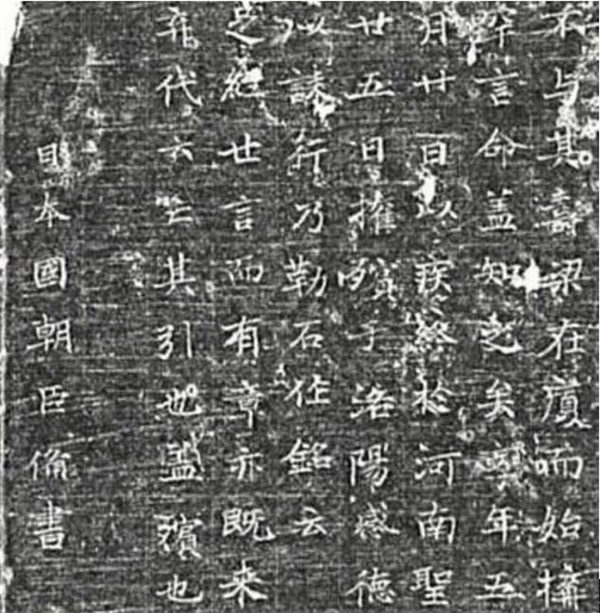 不与其壽梁在廈而始構
罕言命盖知之矣享年五
月廿日以疾終於河南聖
廿五日權殯于洛陽感德
以誄行乃勒石作銘云
足經世言而有章亦既来
弃代云亡其引也盖殯也
日本國朝臣備書